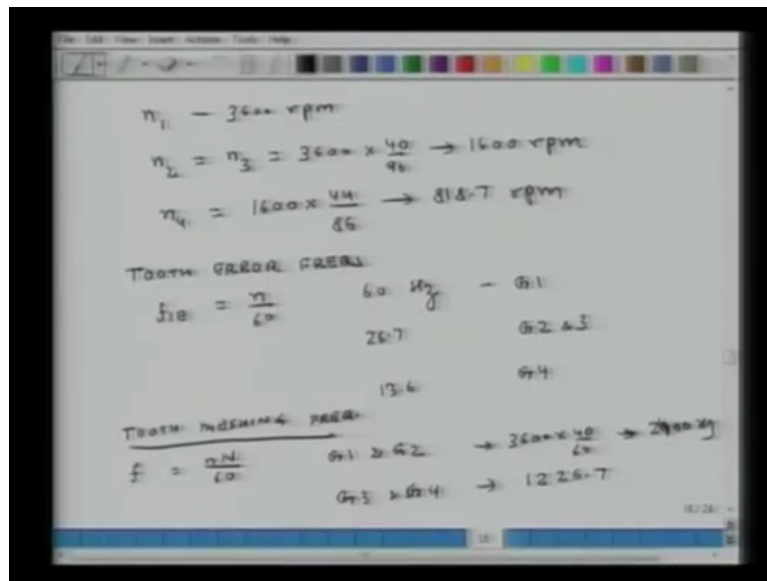 File Edit View Insert Actions Tools Help
n1 - 3600 rpm
n2 = n3 = 3600 x 40/90 → 1600 rpm
n4 = 1600 x 44/86 → 818.7 rpm
TOOTH ERROR FREQS
fie = n/60 60 Hz - G1
26.7 G2 &3
13.6 G4
TOOTH MESHING FREQ.
f = nN/60 G1 & G2 → 3600x40/60 → 2400 Hz
G3 & G4 → 1226.7